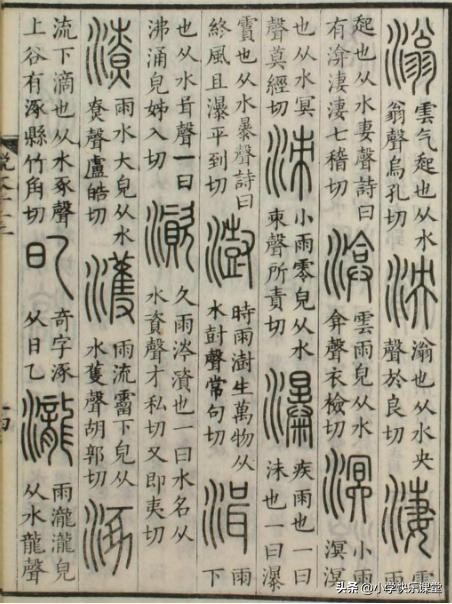 滃
雲气起也从水
翁聲烏孔切
泱
滃也从水央
聲於良切
淒
雲
起也从水妻聲詩曰
有渰淒淒七稽切
渰
雲雨皃从水
弇聲衣檢切
溟
小雨
溟溟
也从水冥
聲莫經切
洓
小雨零皃从水
朿聲所責切
瀑
疾雨也一曰
沫也一曰瀑
霣也从水暴聲詩曰
終風且瀑平到切
澍
時雨澍生萬物从
水尌聲常句切
湒
雨
下
也从水咠聲一曰
沸涌皃姊入切
澬
久雨涔澬也一曰水名从
水資聲才私切又即夷切
潦
雨水大皃从水
尞聲盧皓切
濩
雨流霤下皃从
水蒦聲胡郭切
涿
流下滴也从水豖聲
上谷有涿縣竹角切
𠁿
奇字涿
从日乙
瀧
雨瀧瀧皃
从水龍聲
头条 @小学快乐课堂